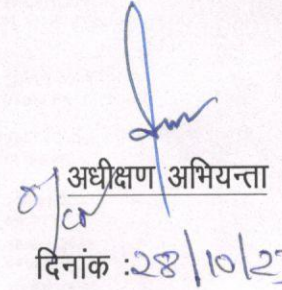 अधीक्षण अभियन्ता
दिनांक :28/10/2